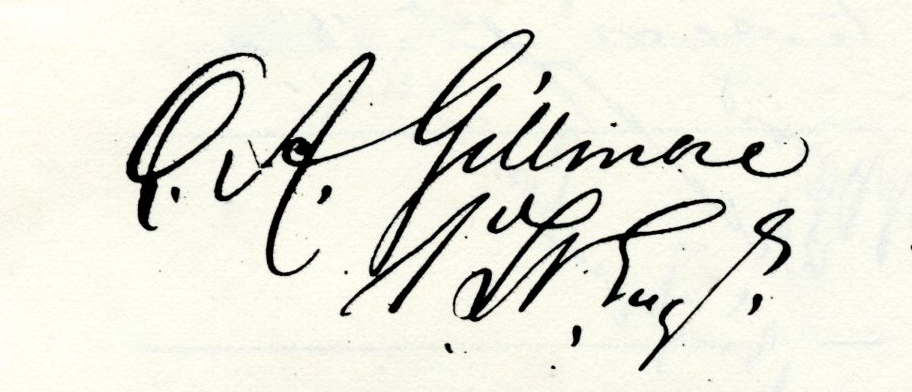 Q. A. Gillmore
Lt. Engrs.